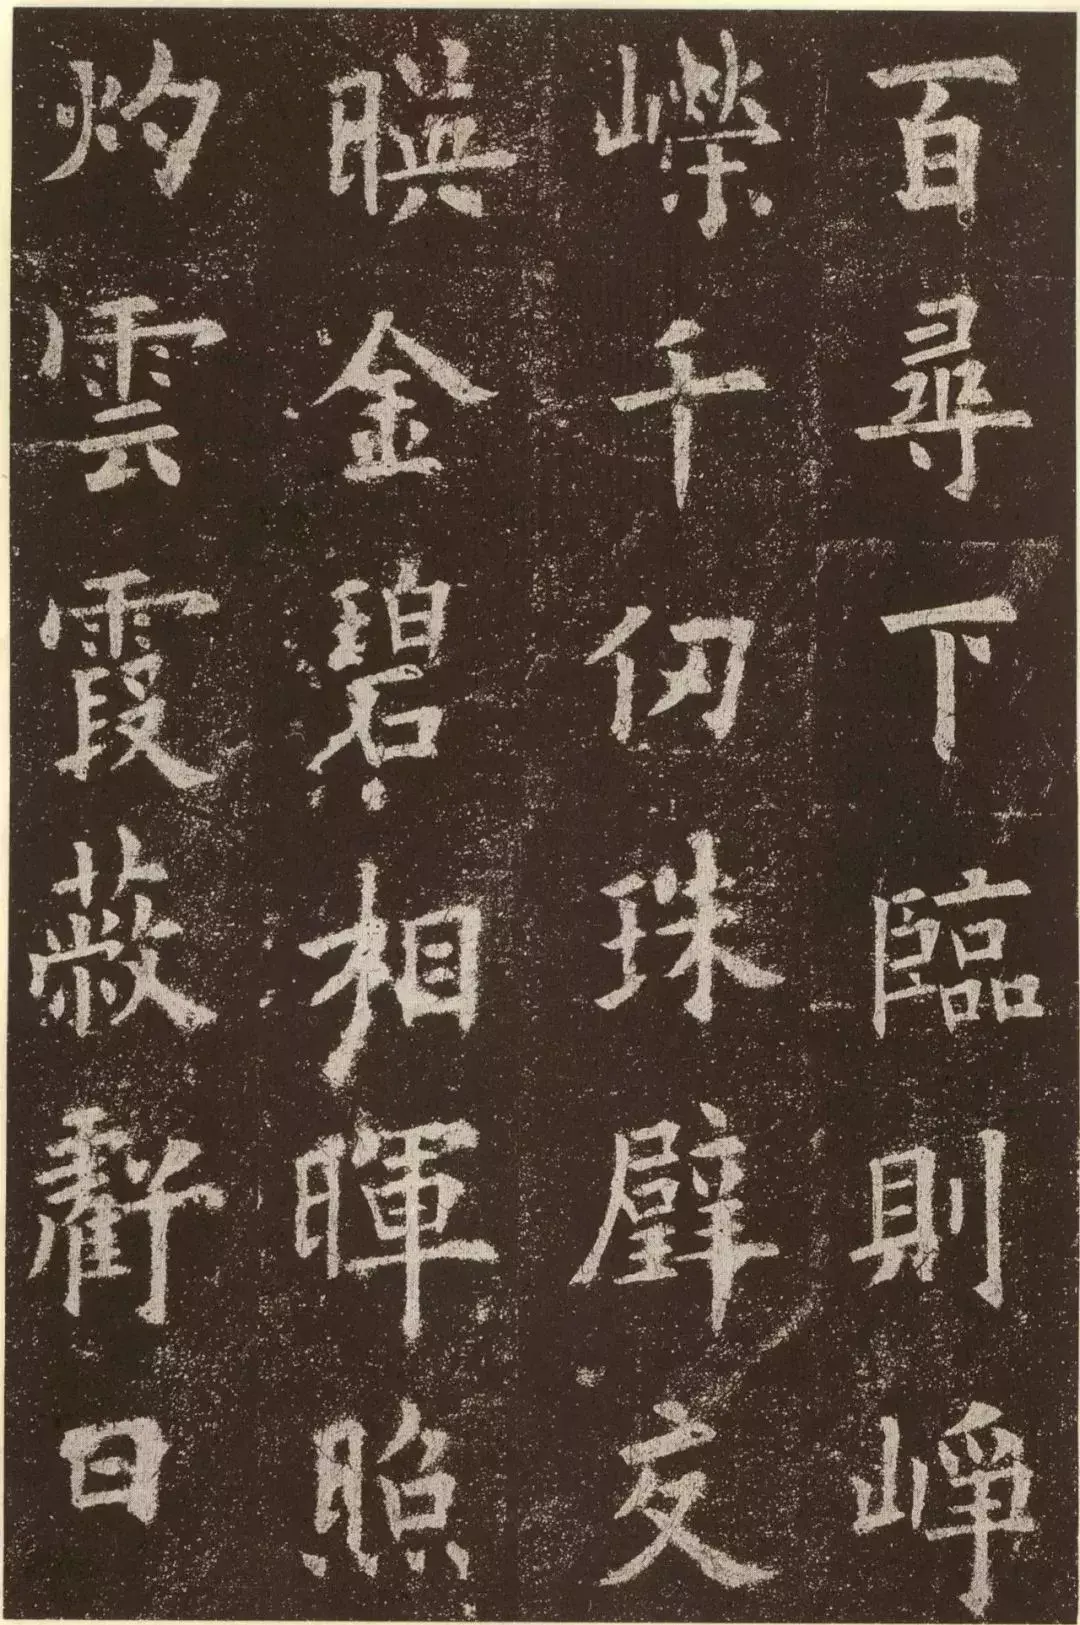 百尋下臨則崢
嶸千仞珠壁交
映金碧相暉照
灼雲霞蔽虧日